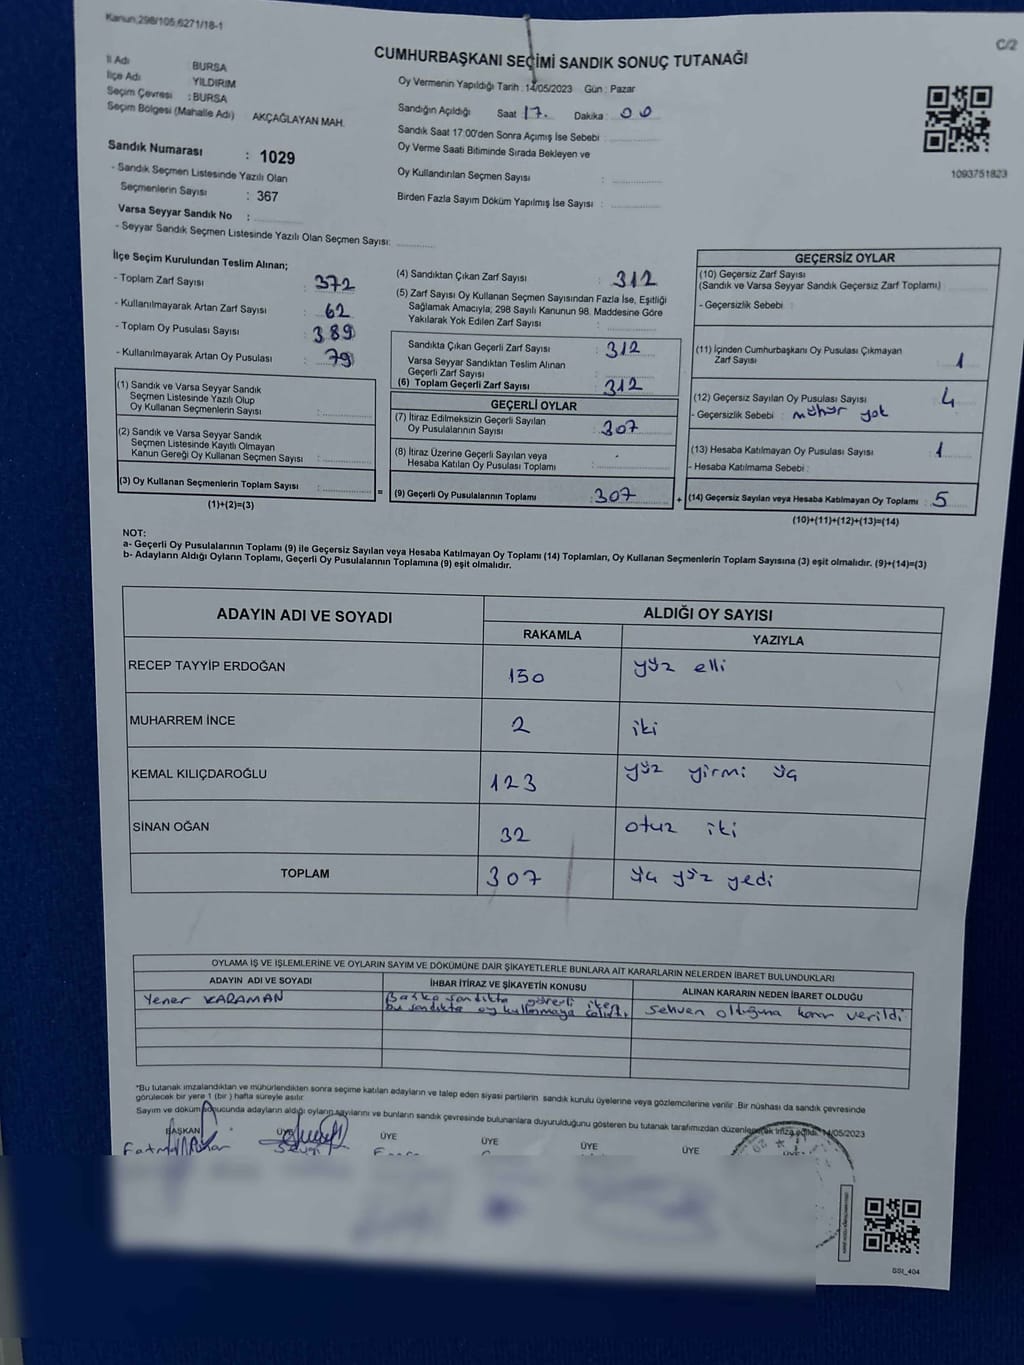 Kanun:298/105,6271/18-1
C/2
CUMHURBAŞKANI SEÇİMİ SANDIK SONUÇ TUTANAĞI
İl Adı : BURSA
İlçe Adı YILDIRIM
Seçim Çevresi : BURSA
Seçim Bölgesi (Mahalle Adı) AKÇAĞLAYAN MAH.
Oy Vermenin Yapıldığı Tarih : 14/05/2023 Gün : Pazar
Sandığın Açıldığı Saat 17. Dakika : 00
Sandık Saat 17:00'den Sonra Açımış İse Sebebi :
Oy Verme Saati Bitiminde Sırada Bekleyen ve
Oy Kullandırılan Seçmen Sayısı :
Birden Fazla Sayım Döküm Yapılmış İse Sayısı :
1093751823
Sandık Numarası : 1029
- Sandık Seçmen Listesinde Yazılı Olan
Seçmenlerin Sayısı : 367
Varsa Seyyar Sandık No :
- Seyyar Sandık Seçmen Listesinde Yazılı Olan Seçmen Sayısı:
İlçe Seçim Kurulundan Teslim Alınan;
- Toplam Zarf Sayısı : 372
- Kullanılmayarak Artan Zarf Sayısı : 62
- Toplam Oy Pusulası Sayısı : 389
- Kullanılmayarak Artan Oy Pusulası : 79
(1) Sandık ve Varsa Seyyar Sandık
Seçmen Listesinde Yazılı Olup
Oy Kullanan Seçmenlerin Sayısı :
(2) Sandık ve Varsa Seyyar Sandık
Seçmen Listesinde Kayıtlı Olmayan
Kanun Gereği Oy Kullanan Seçmen Sayısı :
(3) Oy Kullanan Seçmenlerin Toplam Sayısı :
(1)+(2)=(3)
=
(4) Sandıktan Çıkan Zarf Sayısı : 312
(5) Zarf Sayısı Oy Kullanan Seçmen Sayısından Fazla İse, Eşitliği
Sağlamak Amacıyla; 298 Sayılı Kanunun 98. Maddesine Göre
Yakılarak Yok Edilen Zarf Sayısı :
Sandıkta Çıkan Geçerli Zarf Sayısı : 312
Varsa Seyyar Sandıktan Teslim Alınan
Geçerli Zarf Sayısı :
(6) Toplam Geçerli Zarf Sayısı : 312
GEÇERLİ OYLAR
(7) İtiraz Edilmeksizin Geçerli Sayılan
Oy Pusulalarının Sayısı : 307
(8) İtiraz Üzerine Geçerli Sayılan veya
Hesaba Katılan Oy Pusulası Toplamı : -
(9) Geçerli Oy Pusulalarının Toplamı : 307
+
GEÇERSİZ OYLAR
(10) Geçersiz Zarf Sayısı
(Sandık ve Varsa Seyyar Sandık Geçersiz Zarf Toplamı) :
- Geçersizlik Sebebi :
(11) İçinden Cumhurbaşkanı Oy Pusulası Çıkmayan
Zarf Sayısı : 1
(12) Geçersiz Sayılan Oy Pusulası Sayısı : 4
- Geçersizlik Sebebi : mühür yok
(13) Hesaba Katılmayan Oy Pusulası Sayısı : 1
- Hesaba Katılmama Sebebi :
(14) Geçersiz Sayılan veya Hesaba Katılmayan Oy Toplamı : 5
(10)+(11)+(12)+(13)=(14)
NOT:
a- Geçerli Oy Pusulalarının Toplamı (9) ile Geçersiz Sayılan veya Hesaba Katılmayan Oy Toplamı (14) Toplamları, Oy Kullanan Seçmenlerin Toplam Sayısına (3) eşit olmalıdır. (9)+(14)=(3)
b- Adayların Aldığı Oyların Toplamı, Geçerli Oy Pusulalarının Toplamına (9) eşit olmalıdır.
ADAYIN ADI VE SOYADI
ALDIĞI OY SAYISI
RAKAMLA YAZIYLA
RECEP TAYYİP ERDOĞAN 150 yüz elli
MUHARREM İNCE 2 iki
KEMAL KILIÇDAROĞLU 123 yüz yirmi üç
SİNAN OĞAN 32 otuz iki
TOPLAM 307 üç yüz yedi
OYLAMA İŞ VE İŞLEMLERİNE VE OYLARIN SAYIM VE DÖKÜMÜNE DAİR ŞİKAYETLERLE BUNLARA AİT KARARLARIN NELERDEN İBARET BULUNDUKLARI
ADAYIN ADI VE SOYADI İHBAR İTİRAZ VE ŞİKAYETİN KONUSU ALINAN KARARIN NEDEN İBARET OLDUĞU
Yener KARAMAN Başka sandıkta görevli iken
bu sandıkta oy kullanmaya çalıştı sehven olduğuna karar verildi
*Bu tutanak imzalandıktan ve mühürlendikten sonra seçime katılan adayların ve talep eden siyasi partilerin sandık kurulu üyelerine veya gözlemcilerine verilir .Bir nüshası da sandık çevresinde
görülecek bir yere 1 (bir ) hafta süreyle asılır.
Sayım ve döküm sonucunda adayların aldığı oyların sayılarını ve bunların sandık çevresinde bulunanlara duyurulduğunu gösteren bu tutanak tarafımızdan düzenlenerek imza edildi. 14/05/2023
BAŞKAN ÜYE ÜYE ÜYE ÜYE ÜYE ÜYE
Sevgi
SSI_404